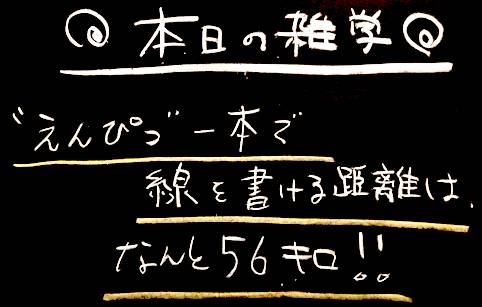 本日の雑学
"えんぴつ"一本で
線を書ける距離は、
なんと56キロ!!